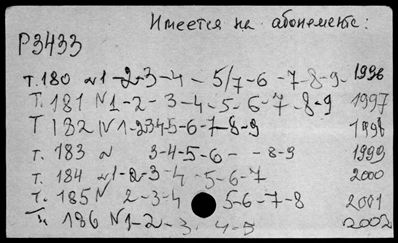 Имеется на абонементе:
Р3433
т. 180 N 1-2-3-4 - 5/7-6-7-8-9- 1996
Т. 181 N 1-2-3-4-5-6-7-8-9 1997
Т 182 N 1-2-3-4-5-6-7-8-9 1998
т. 183 N 3-4-5-6- -8-9 1999
т. 184 N 1-2-3-4-5-6-7 2000
т. 185 N 2-3-4 5-6-7-8 2001
т. 186 N 1-2-3 4-5 2002